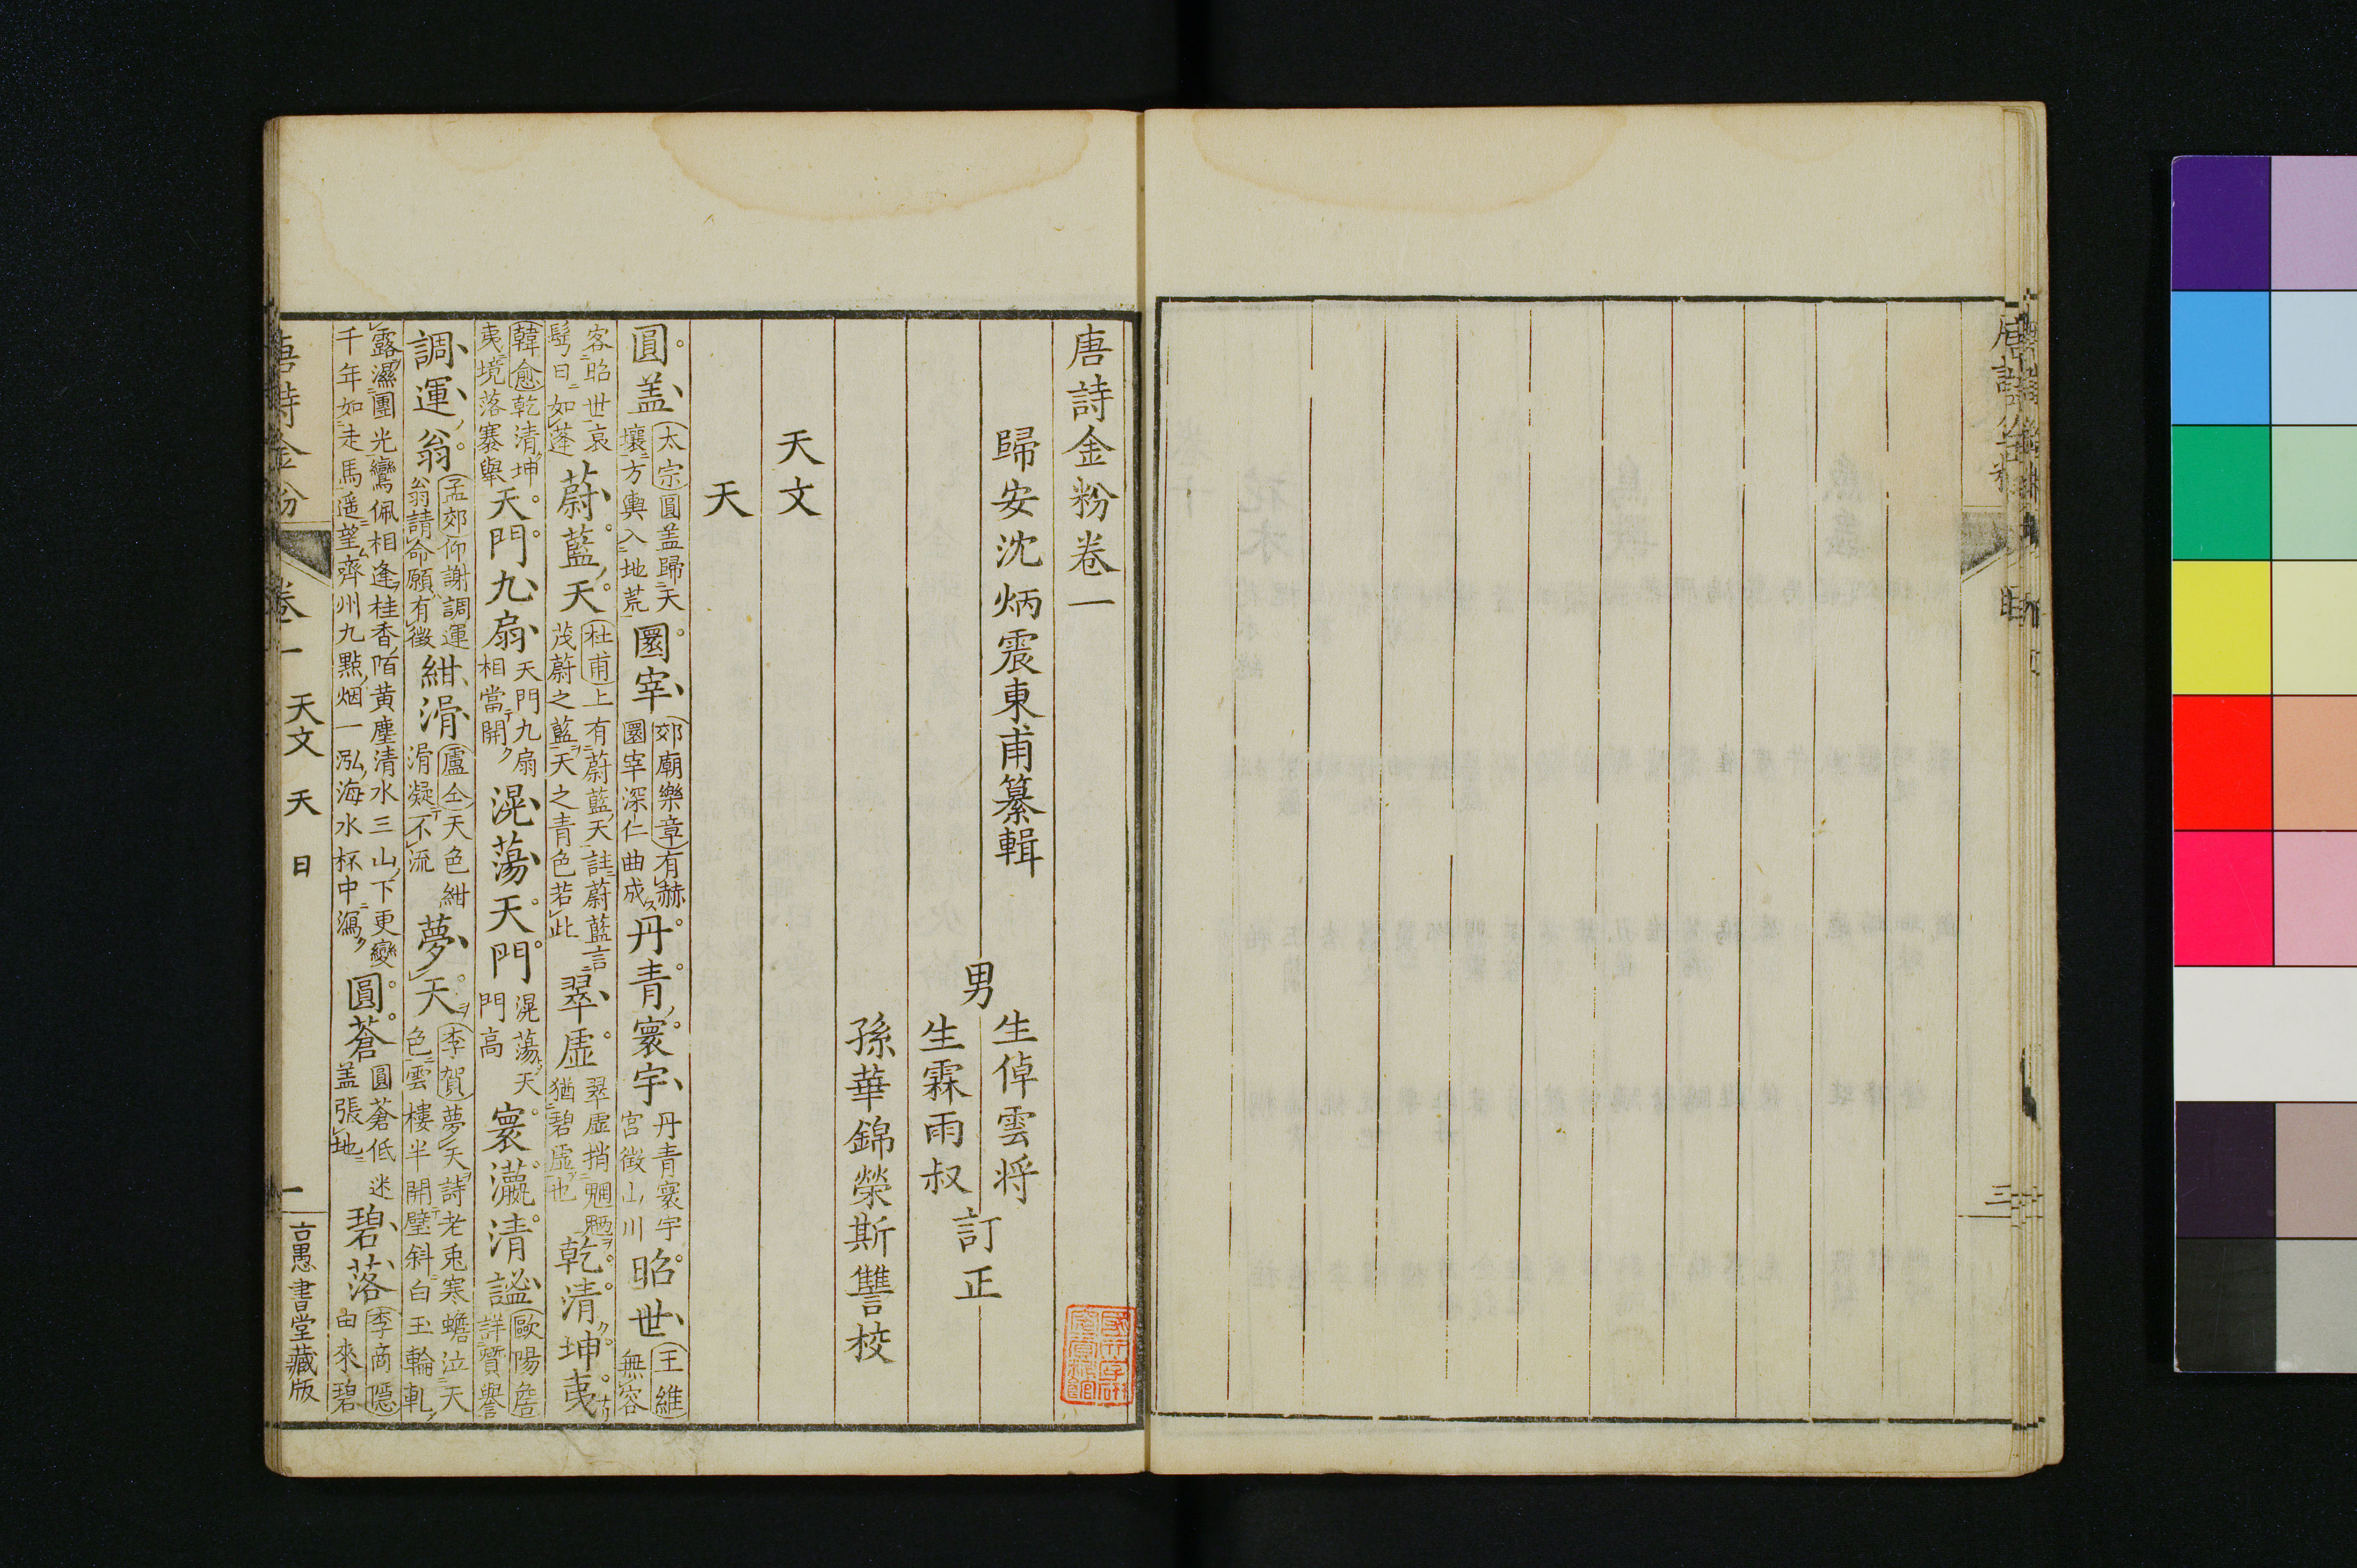 唐詩金粉卷一
歸安沈炳震東甫纂輯
男
生倬雲将
生霖雨叔
訂正
孫華錦榮斯讐校
天文
天
圓盖(太宗)圓盖歸天壤方輿入地荒圜宰(郊廟樂章)有赫圜宰深仁曲成丹青寰宇丹青寰宇宮徵山川昭世(王維)無容
客昭世哀鬂日如蓬蔚藍天(杜甫)上有蔚藍天註蔚藍言茂蔚之藍天之青色若此翠虛翠虛捎魍魎猶碧虛也乾清坤夷
(韓愈)乾清坤夷境落褰舉天門九扇天門九扇相當開滉蕩天門滉蕩天門高寰瀛清謐(歐陽詹)詳質譽
調運翁(孟郊)仰謝調運翁請命願有徵紺滑(盧仝)天色紺滑凝不流夢天(李賀)夢天詩老兎寒蟾泣天色雲樓半開壁斜白玉輪軋
露濕團光鸞佩相逢桂香陌黄塵清水三山下更變千年如走馬遥望齊州九點烟一泓海水杯中瀉圓蒼圓蒼低迷盖張地碧落(李商隱)由來碧
唐詩金粉
卷一
天文
天
日
一
古愚書堂藏版
唐詩金粉
三